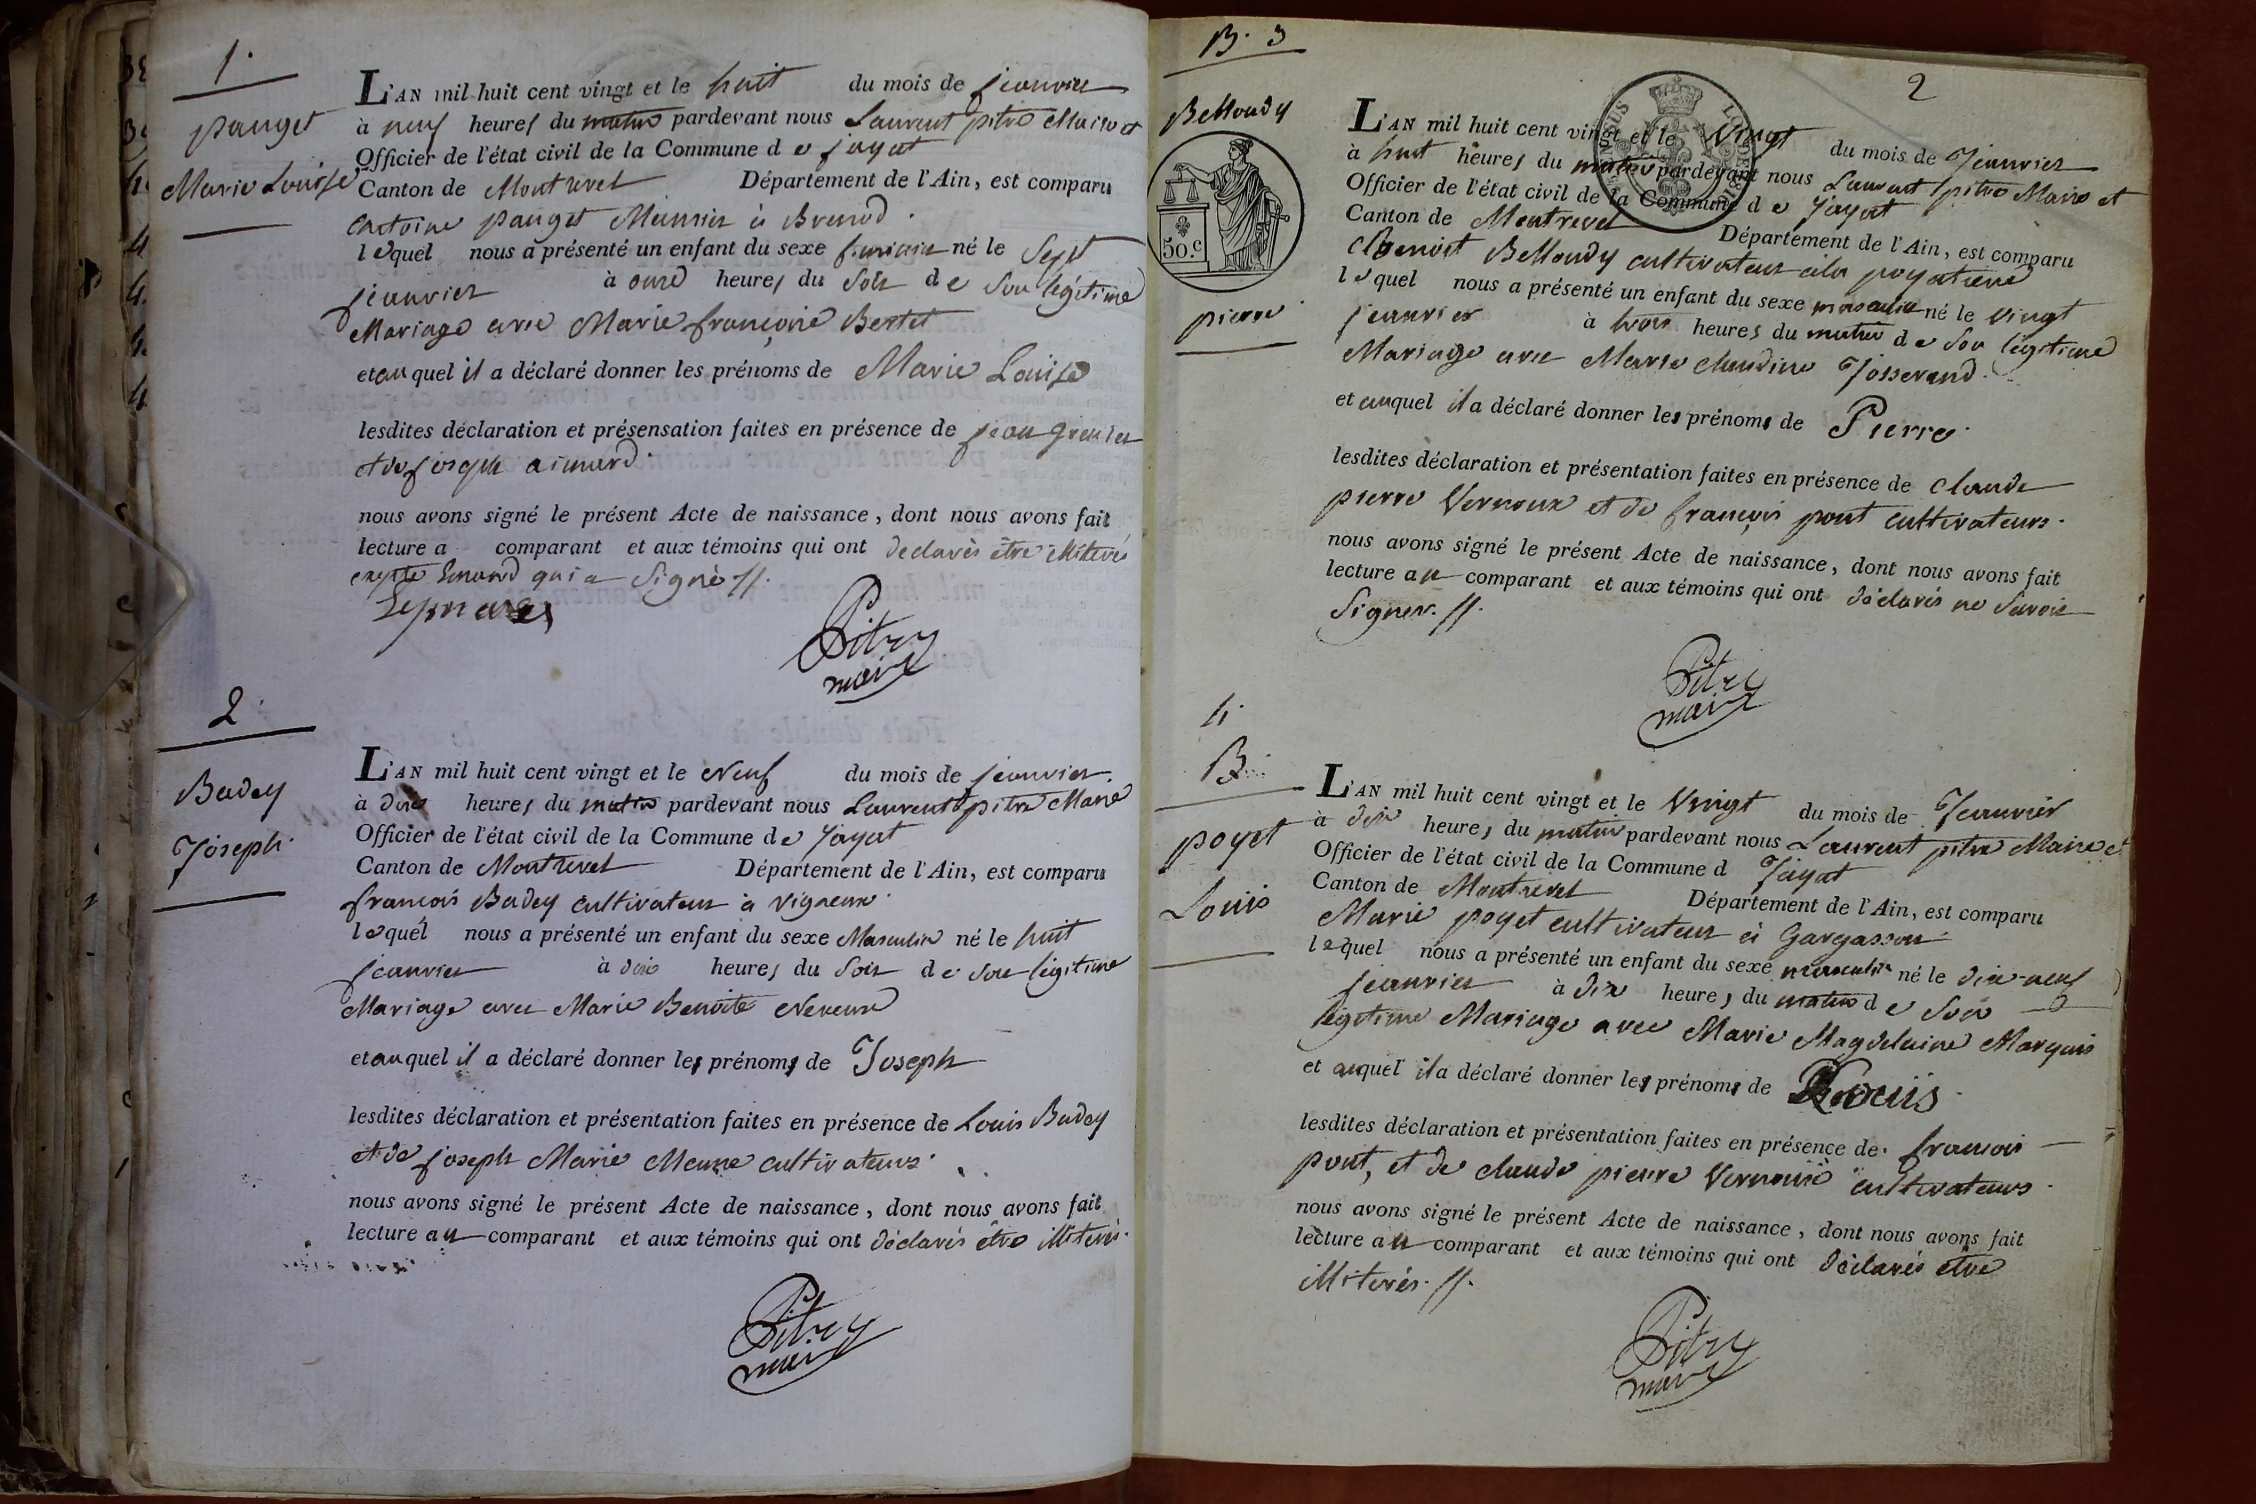 1.
pauget
Marie Louise
L'AN mil huit cent vingt et le huit du mois de janvier
à neuf heures du matin pardevant nous Laurent pitre Maire et
Officier de l'état civil de la Commune de jayat
Canton de Montrevel Département de l'Ain, est comparu
antoine pauget Meunier à
lequel nous a présenté un enfant du sexe feminin né le Sept
janvier à onze heures du Soir de Son légitime
Mariage avec Marie françoise Bertet
et auquel il a déclaré donner les prénoms de Marie Louise
lesdites déclaration et présensation faites en présence de jean
et de joseph
nous avons signé le présent Acte de naissance, dont nous avons fait
lecture a comparant et aux témoins qui ont declarés être illiterés
excepté qui a Signé //.
Pitre
maire
2.
Badey
Joseph.
L'AN mil huit cent vingt et le Neuf du mois de janvier.
à dix heures du matin pardevant nous Laurent pitre Maire
Officier de l'état civil de la Commune de Jayat
Canton de Montrevel Département de l'Ain, est comparu
françois Badey cultivateur à vigneux.
lequel nous a présenté un enfant du sexe Masculin né le huit
janvier à dix heures du Soir de Son légitime
Mariage avec Marie Benoite Neveux
et auquel il a déclaré donner les prénoms de Joseph
lesdites déclaration et présentation faites en présence de Louis Badey
et de joseph Marie cultivateurs.
nous avons signé le présent Acte de naissance, dont nous avons fait
lecture au comparant et aux témoins qui ont déclarés être illiterés.
Pitre
maire
B. 3
2
Belloudy
50.c
pierre
L'AN mil huit cent vingt et le Vingt du mois de Janvier
à huit heures du matin pardevant nous Laurent pitre Maire et
Officier de l'état civil de la Commune de Jayat
Canton de Montrevel Département de l'Ain, est comparu
Benoit Belloudy cultivateur à la
lequel nous a présenté un enfant du sexe masculin né le vingt
janvier à trois heures du matin de Son légitime
Mariage avec Marie claudine Josserand.
et auquel il a déclaré donner les prénoms de Pierre.
lesdites déclaration et présentation faites en présence de claude
pierre Vernoux et de françois pont cultivateurs.
nous avons signé le présent Acte de naissance, dont nous avons fait
lecture au comparant et aux témoins qui ont déclarés ne Savoir
Signer. //.
Pitre
maire
4.
B.
poyet
Louis
L'AN mil huit cent vingt et le Vingt du mois de Janvier
à dix heures du matin pardevant nous Laurent pitre Maire et
Officier de l'état civil de la Commune d Jayat
Canton de Montrevel Département de l'Ain, est comparu
Marie poyet cultivateur à Gargasson.
lequel nous a présenté un enfant du sexe masculin né le dix-neuf
janvier à dix heures du matin de Son
légitime Mariage avec Marie Magdelaine Marquis
et auquel il a déclaré donner les prénoms de Louis.
lesdites déclaration et présentation faites en présence de françois
pont, et de claude pierre Vernoux cultivateurs.
nous avons signé le présent Acte de naissance, dont nous avons fait
lecture au comparant et aux témoins qui ont déclarés être
illiterés. //.
Pitre
maire